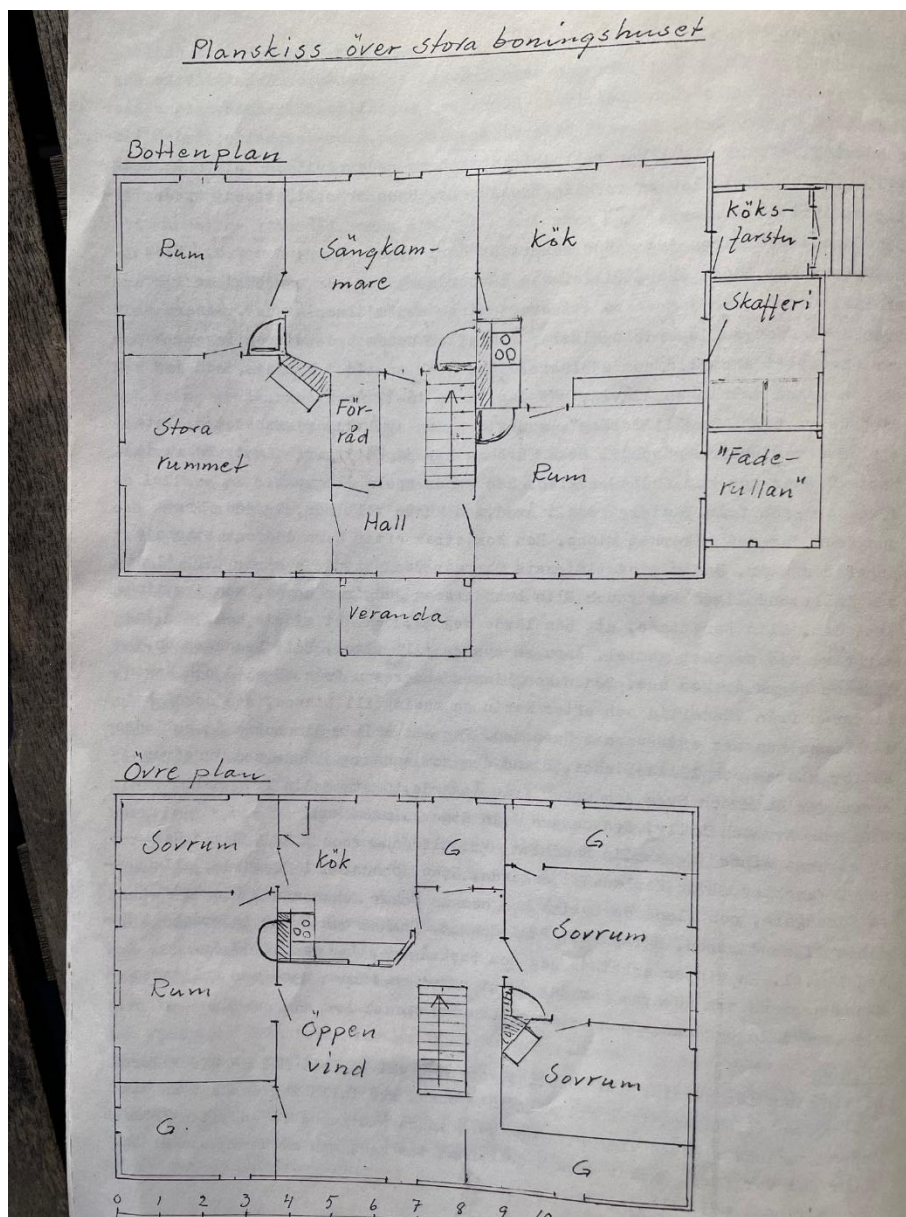 Planskiss över stora boningshuset
Bottenplan
Rum
Sängkam-
mare
Kök
Köks-
farstu
Skafferi
Stora
rummet
För-
råd
Rum
"Fade-
rullan"
Hall
Veranda
Övre plan
Sovrum
Kök
G
G
Sovrum
Rum
Öppen
vind
Sovrum
G.
G
0 1 2 3 4 5 6 7 8 9 10